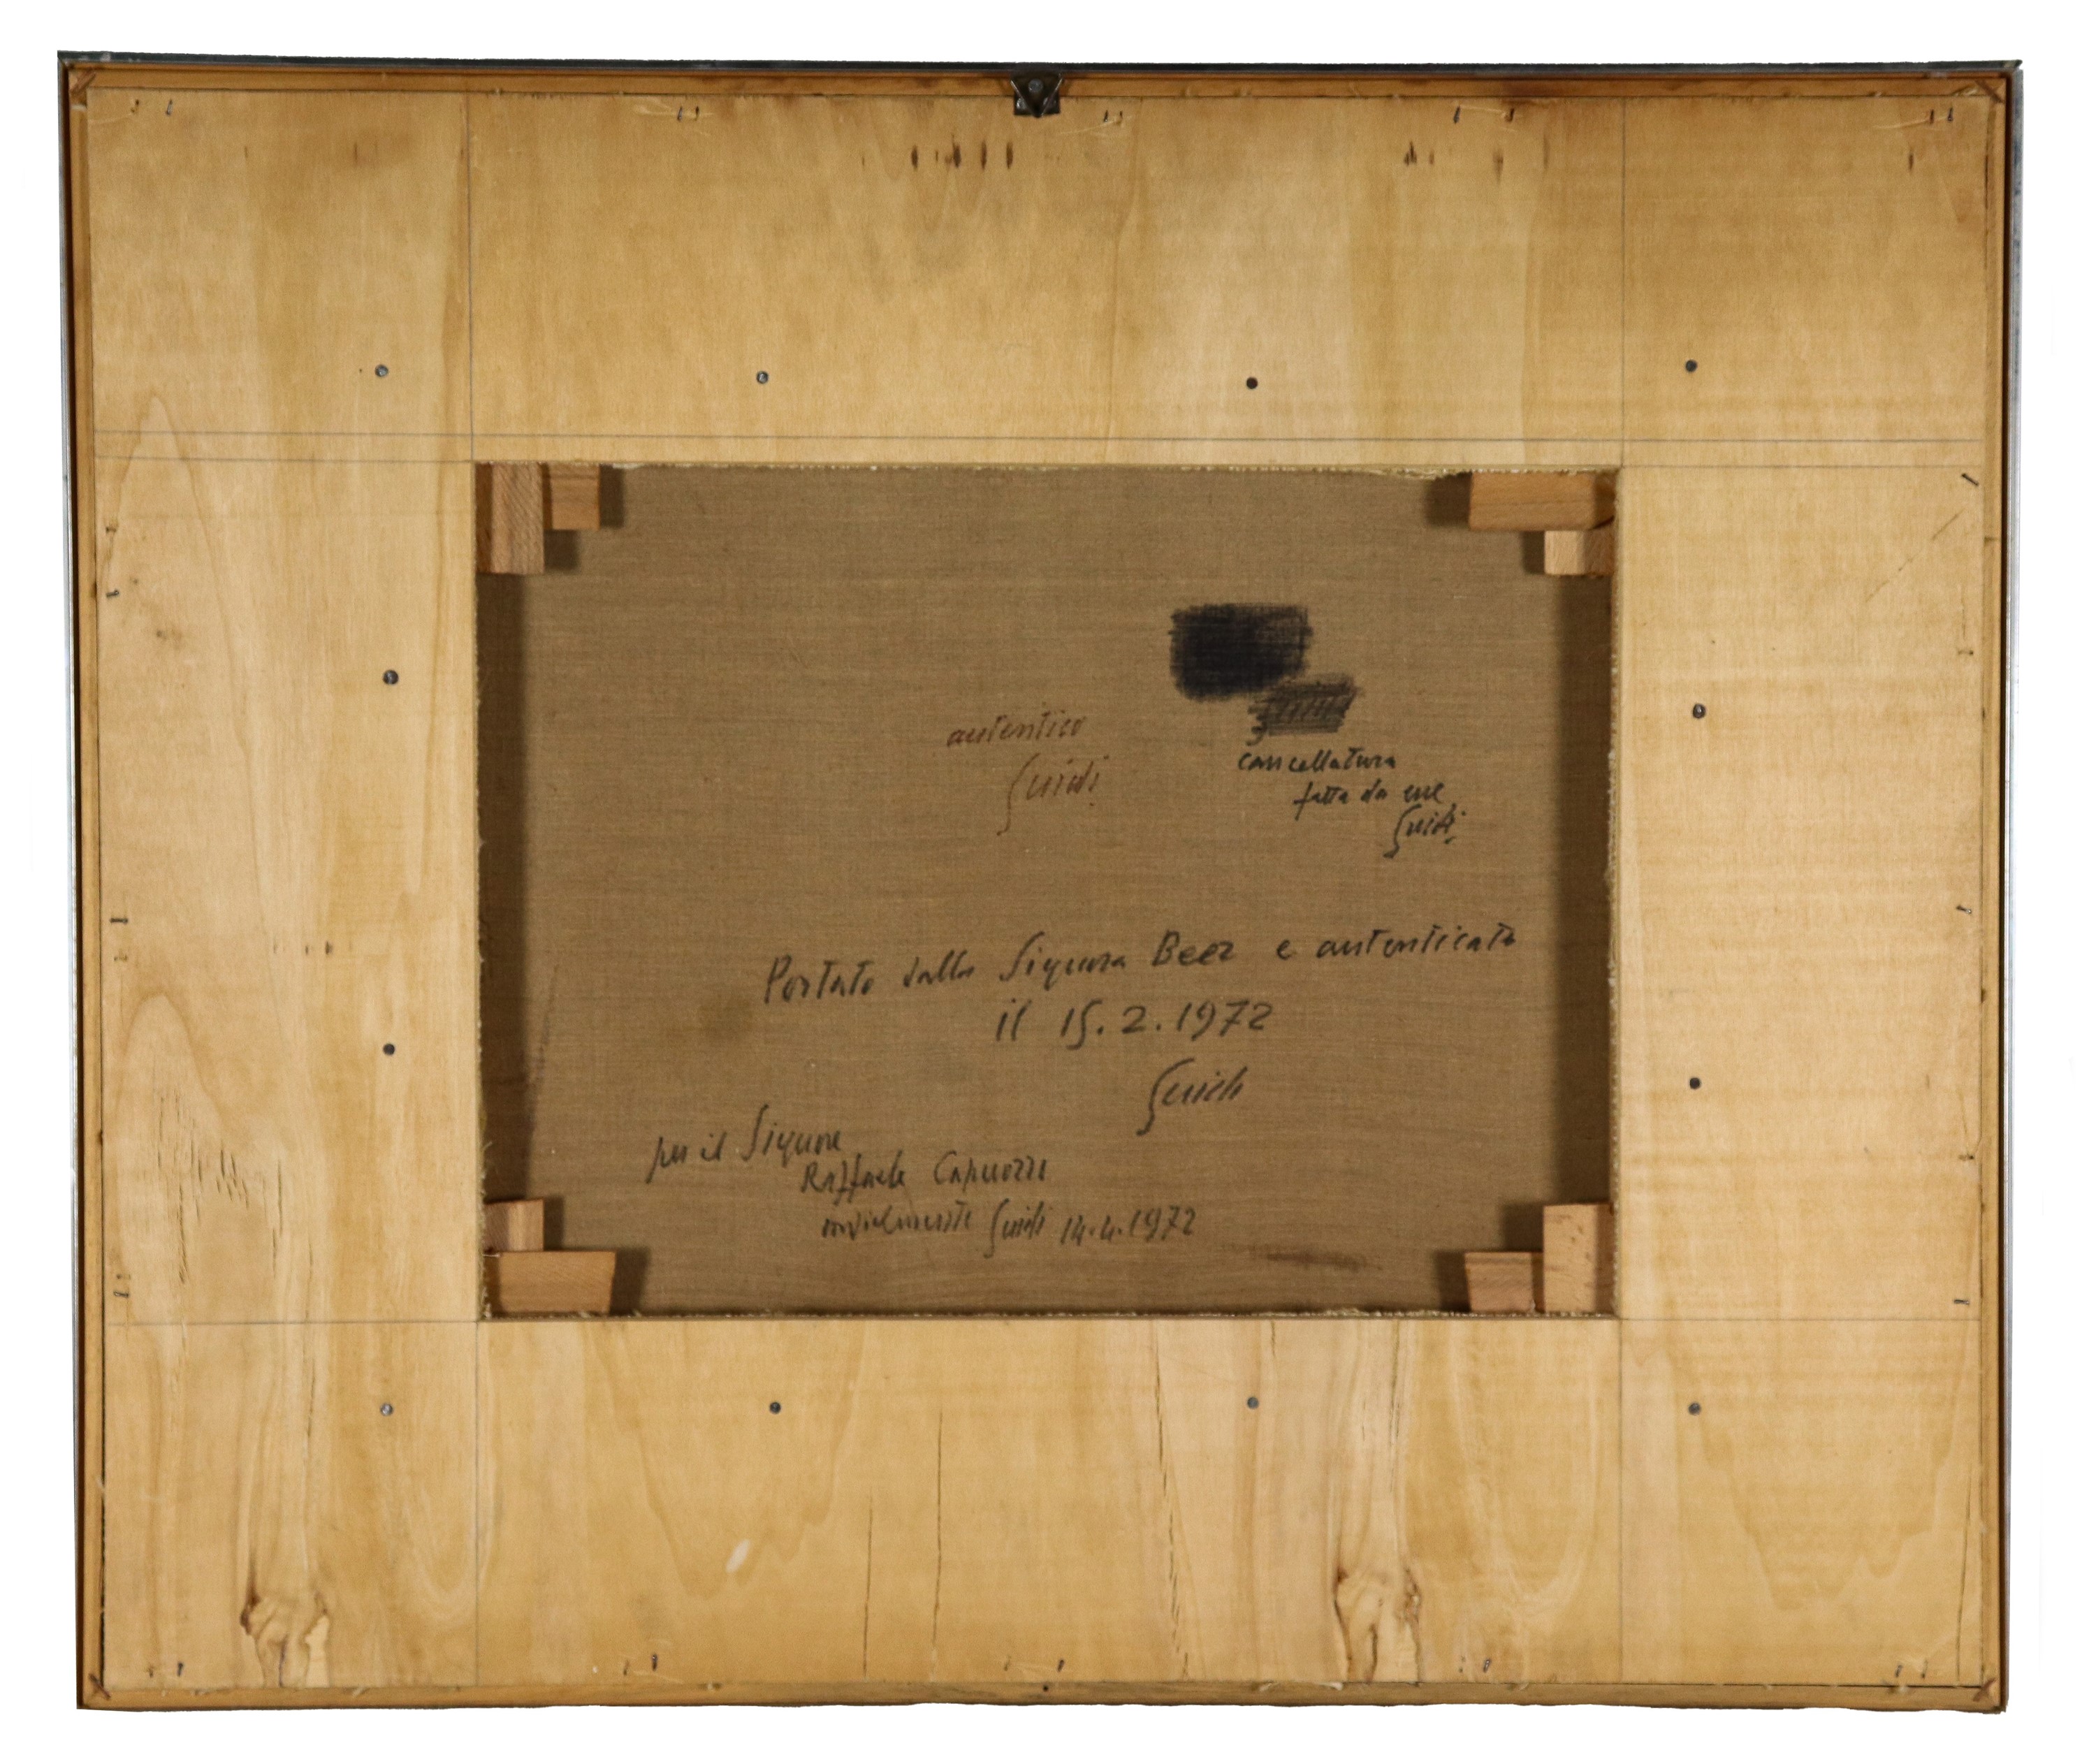 autentico
Guidi
cancellatura
fatta da me
Guidi
Portato dalla Signora Beer e autenticato
il 15.2.1972
Guidi
per il Signore
Raffaele Capuozzi
cordialmente Guidi 14.4.1972